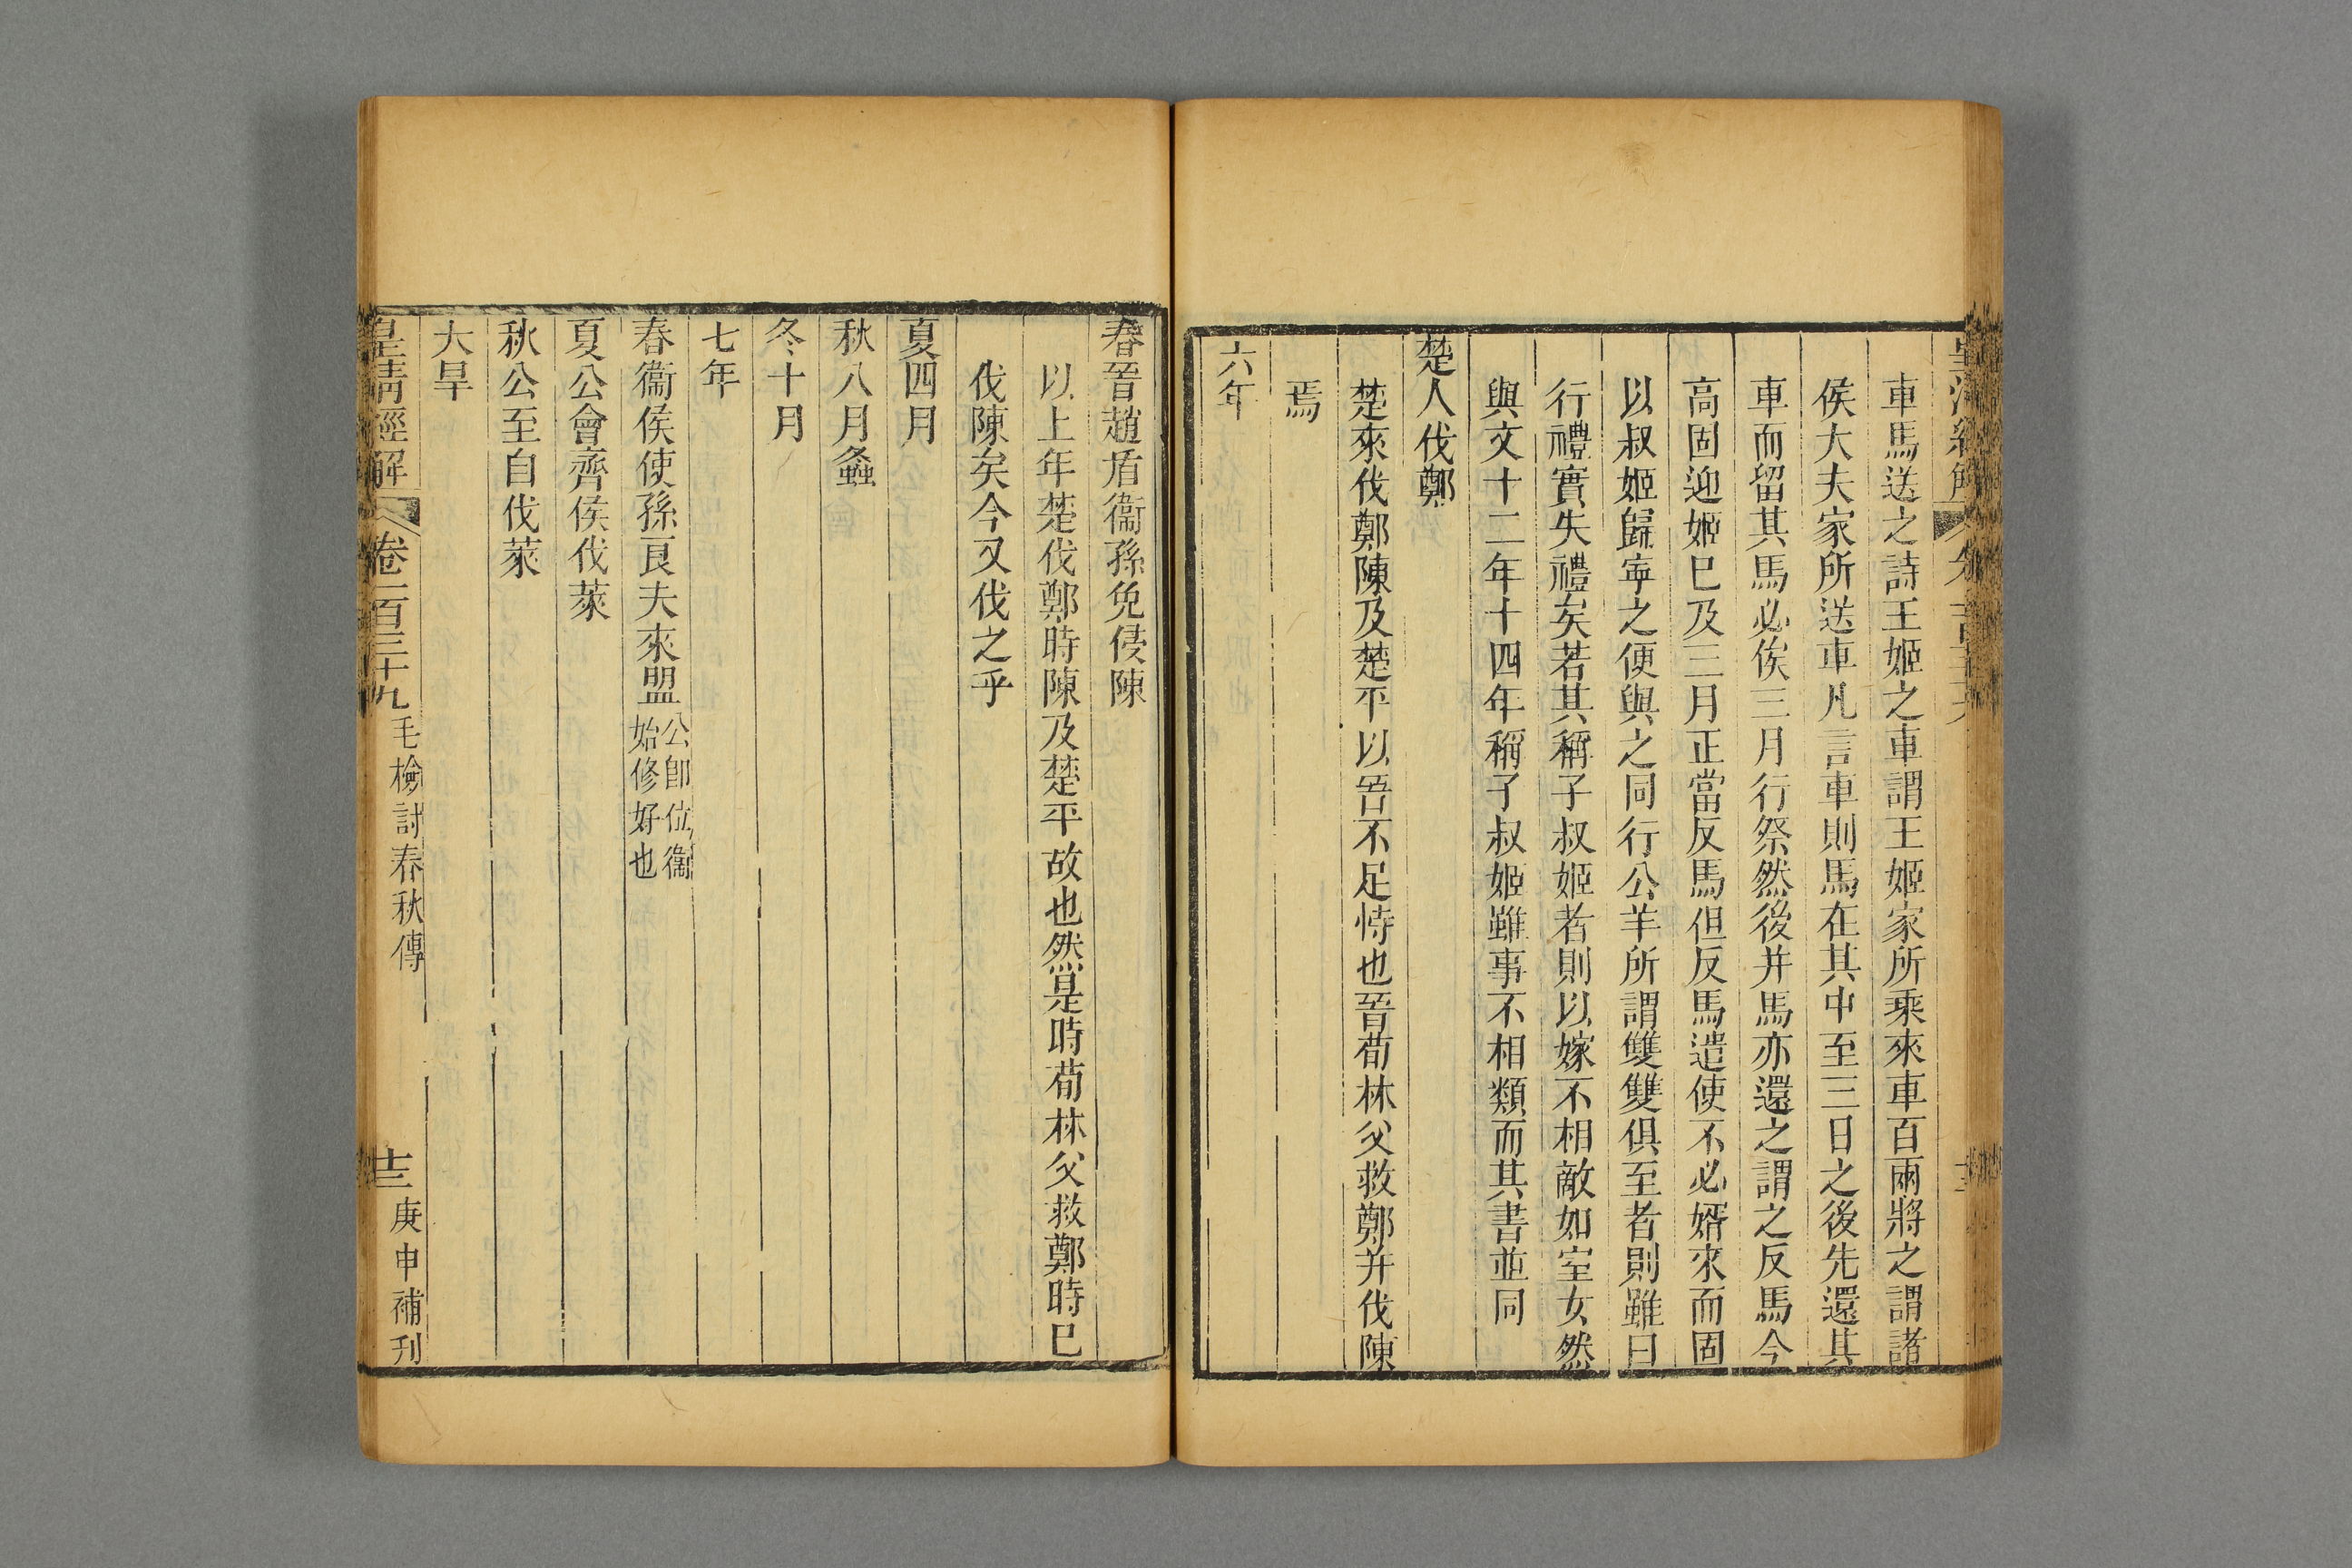 車馬送之詩王姬之車謂王姬家所乘來車百兩將之謂諸
侯大夫家所送車凡言車則馬在其中至三日之後先還其
車而留其馬必俟三月行祭然後并馬亦還之謂之反馬今
高固迎姬巳及三月正當反馬但反馬遣使不必婿來而固
以叔姬歸寧之便與之同行公羊所謂雙雙俱至者則雖曰
行禮實失禮矣若其稱子叔姬者則以嫁不相敵如室女然
與文十二年十四年稱子叔姬雖事不相類而其書並同
楚人伐鄭
楚來伐鄭陳及楚平以晉不足恃也晉荀林父救鄭并伐陳
焉
六年
春晉趙盾衞孫免侵陳
以上年楚伐鄭時陳及楚平故也然是時荀林父救鄭時巳
伐陳矣今又伐之乎
夏四月
秋八月螽
冬十月
七年
春衞侯使孫良夫來盟公卽位衞始修好也
夏公會齊侯伐萊
秋公至自伐萊
大旱
皇清經解 卷一百三十九 毛檢討春秋傳 十三 庚申補刊